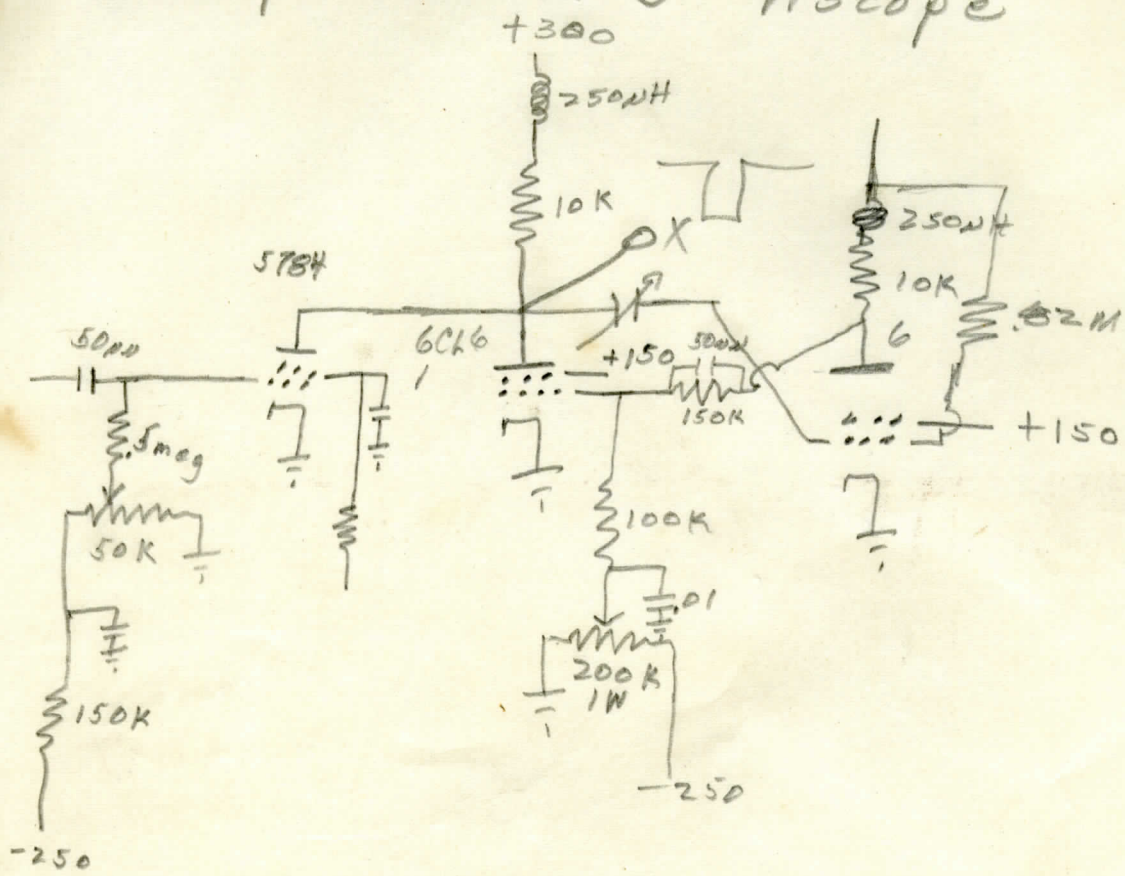 nscope
+300
250μH
10K
X
250μH
10K
.82M
5784
6CL6
1
50μμ
+150
50μμ
150K
6
+150
.5meg
50K
100K
.01
200K
1W
150K
-250
-250